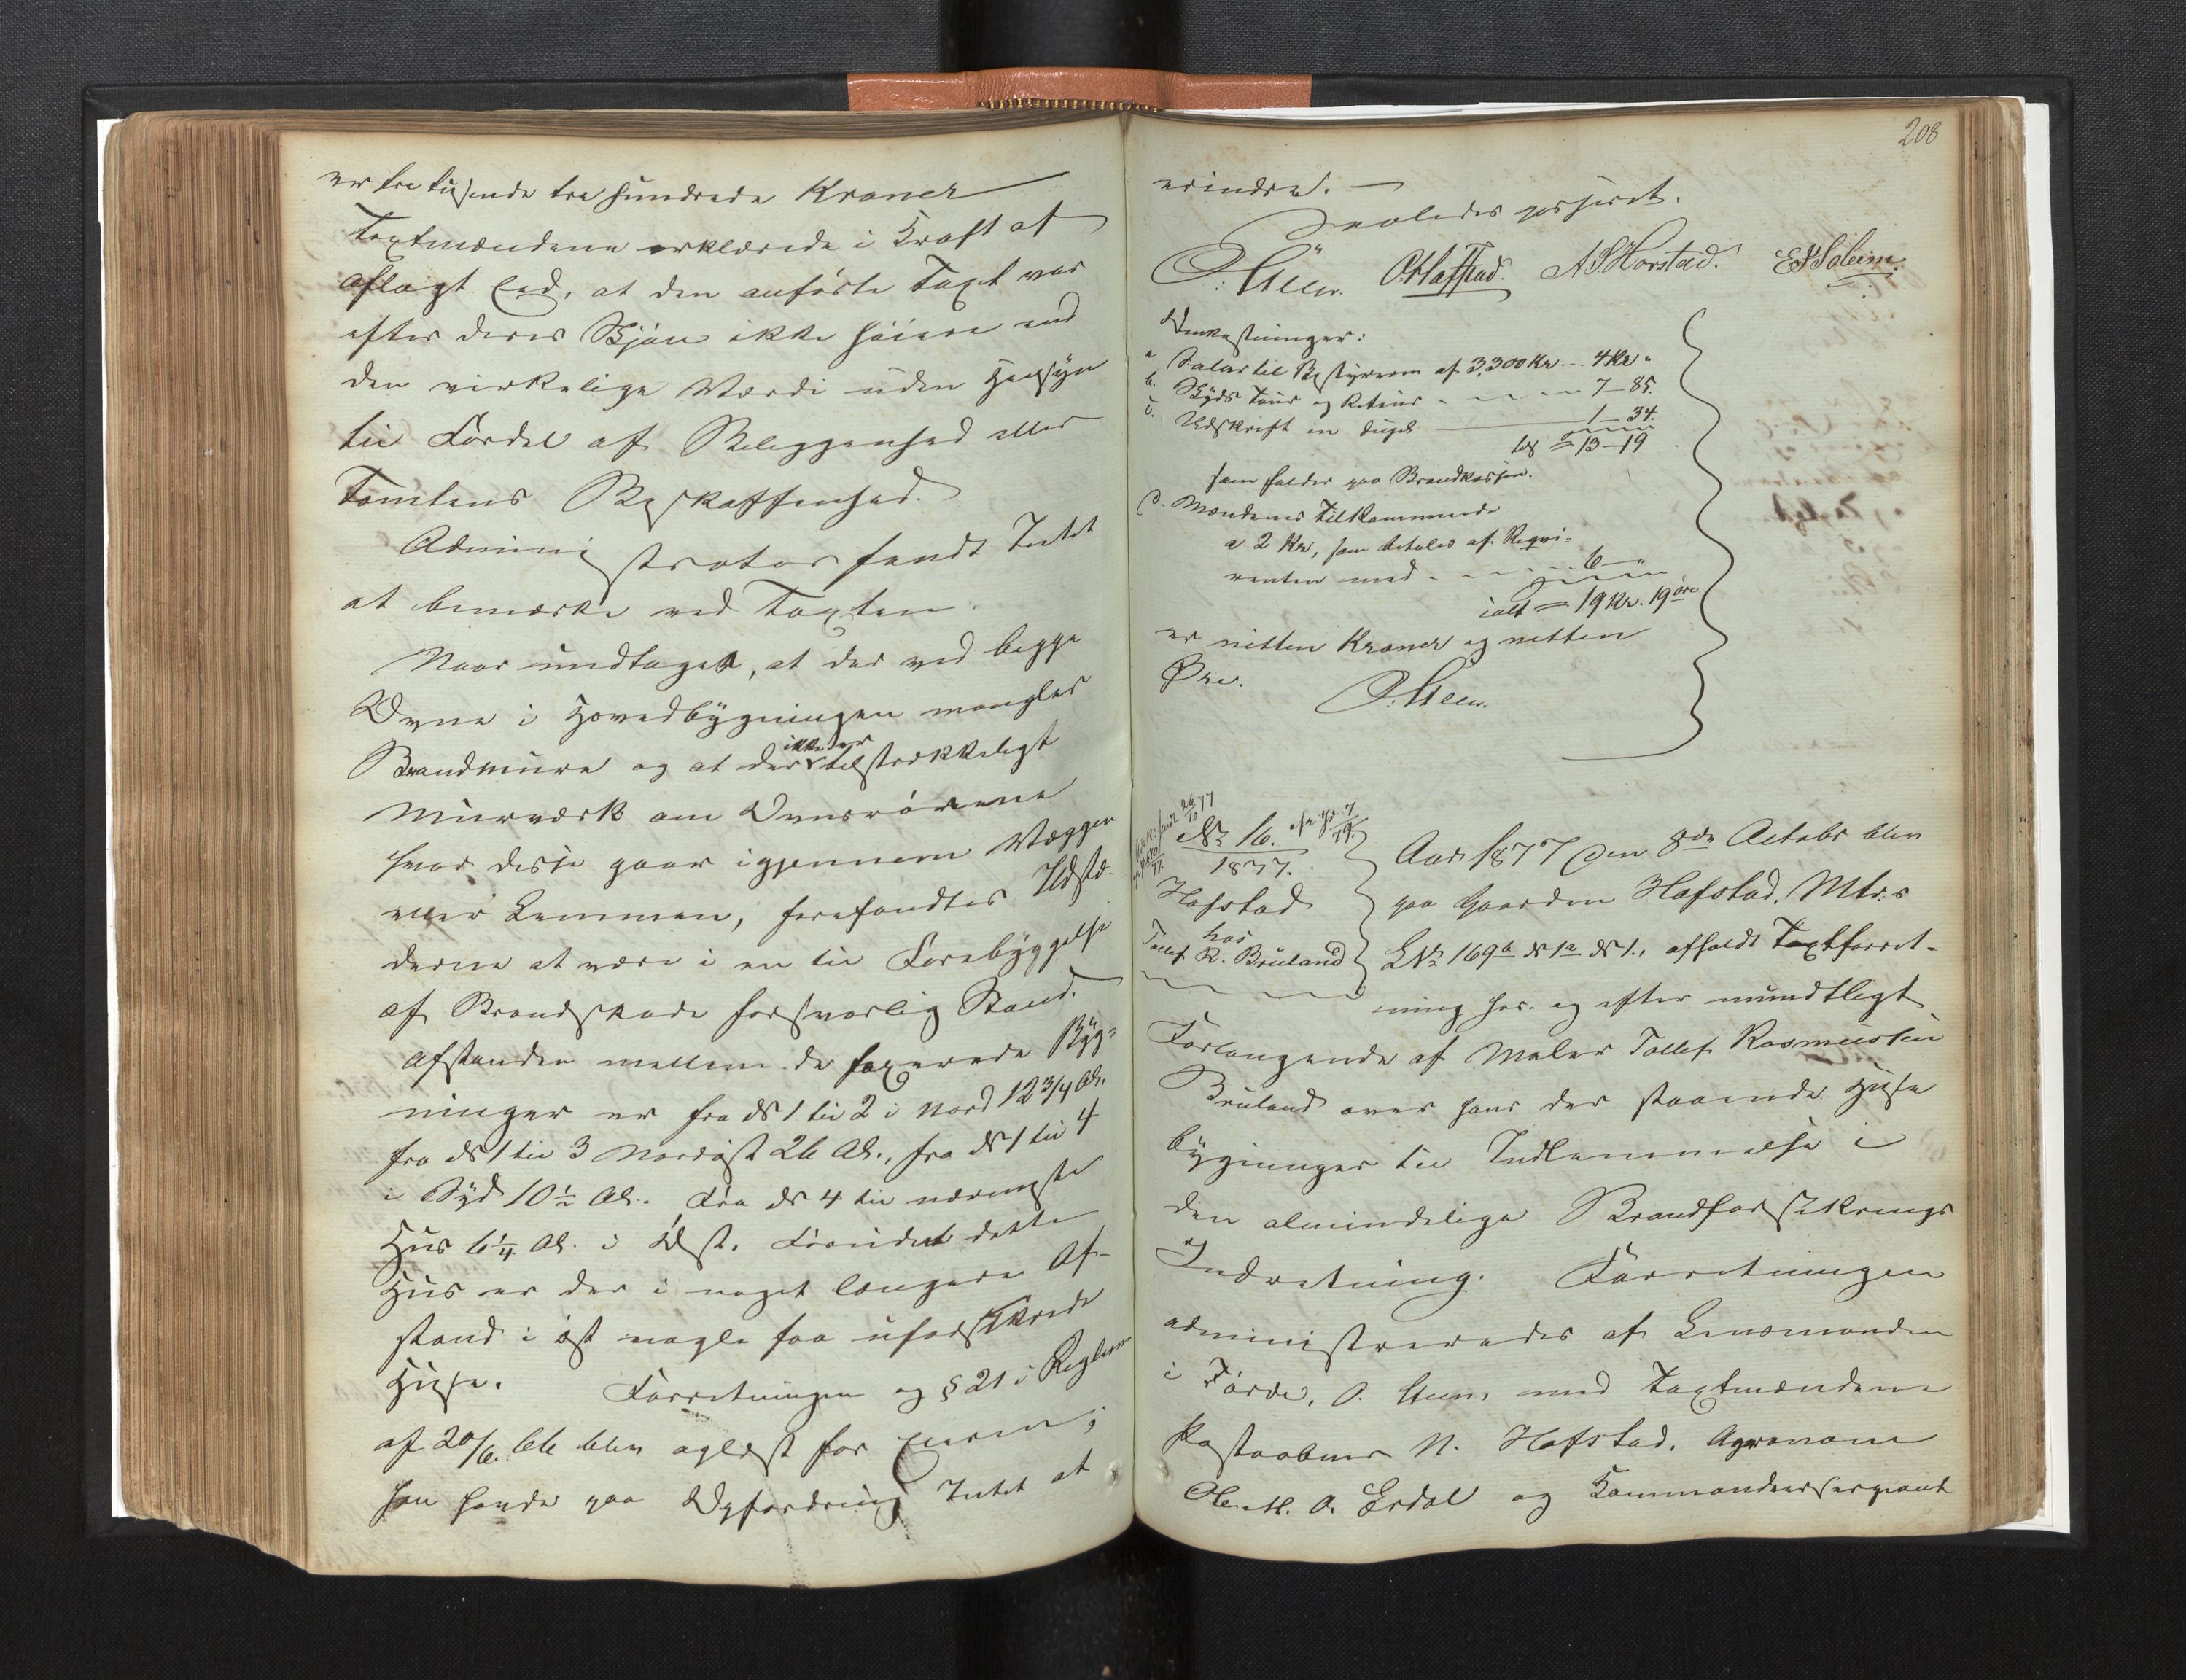 er tre tusende tre hundrede Kroner
Taxtmændene erklærede i Kraft af
aflagt Eed, at den anförte Taxt var
efter deres Skjøn ikke høiere end
den virkelige Værdi uden Hensyn
til Fordel af Beliggenhed eller
Tomtens Beskaffenhed.
Administrator fandt Intet
at bemærke ved Taxten.
Naar undtages, at der ved begge
Ovne i Hovedbygningen mangler
Brandmure og at der ikke er tilstrækkeligt
Murværk om Ovnsrörene
hvor disse gaar igjennem Vægger
eller Lemmen, forefandtes Ildste-
derne at være i en til Forebyggelse
af Brandskade forsvarlig Stand.
Afstanden mellem de taxerede Byg-
ninger er fra № 1 til 2 i Nord 12 3/4 Al.
fra № 1 til 3 Nordöst 26 Al., fra № 1 til 4
i Syd 10 1/2 Al. Fra № 4 til nærmeste
Hus 6 1/4 Al. i Øst. Foruden dette
Hus er der i noget længere Af-
stand i øst nogle faa uforsikrede
Huse. Forretningen og § 21 i Reglem
af 20/6. 66 blev oplæst for Eieren;
han havde paa Opfordring Intet at
208
erindre. —
Saaledes passeret.
O. Steen. O. Hafstad. A S Horstad. E N Soleim.
Omkostninger:
a Salar til Bestyreren af 3,300 Kr ... 4 Kr "
b. Skyds Tour og Retour - - - - 7 – 85.
c. Udskrift in duplo 1 – 34.
tils = 13 – 19
som falder paa Brandkassen.
d. Mændenes Tilkommende
a 2 Kr, som betales af Reqvi-
renten med - - - - 6 – "
ialt = 19 Kr. 19 øre
er nitten Kroner og nitten
Øre.
O. Steen.
№ 16.
1877.
Hafstad
hos
Tollef R. Bruland
Aar 1877 den 8de Octobr blev
paa Gaarden Hafstad, Mtr:s
L№ 169b № 1a № 1., afholdt Taxtforret-
ning hos. og efter mundtligt
Forlangende af Maler Tollef Rasmussen
Bruland over hans der staaende Huse
bygninger til Indlemmelse i
den almindelige Brandforsikrings
Indretning. Forretningen
administreredes af Lensmanden
i Førde, O. Steen, med Taxtmændene
Postaabner N. Hafstad, Agronom
A. Erdal og Kommandeersergeant